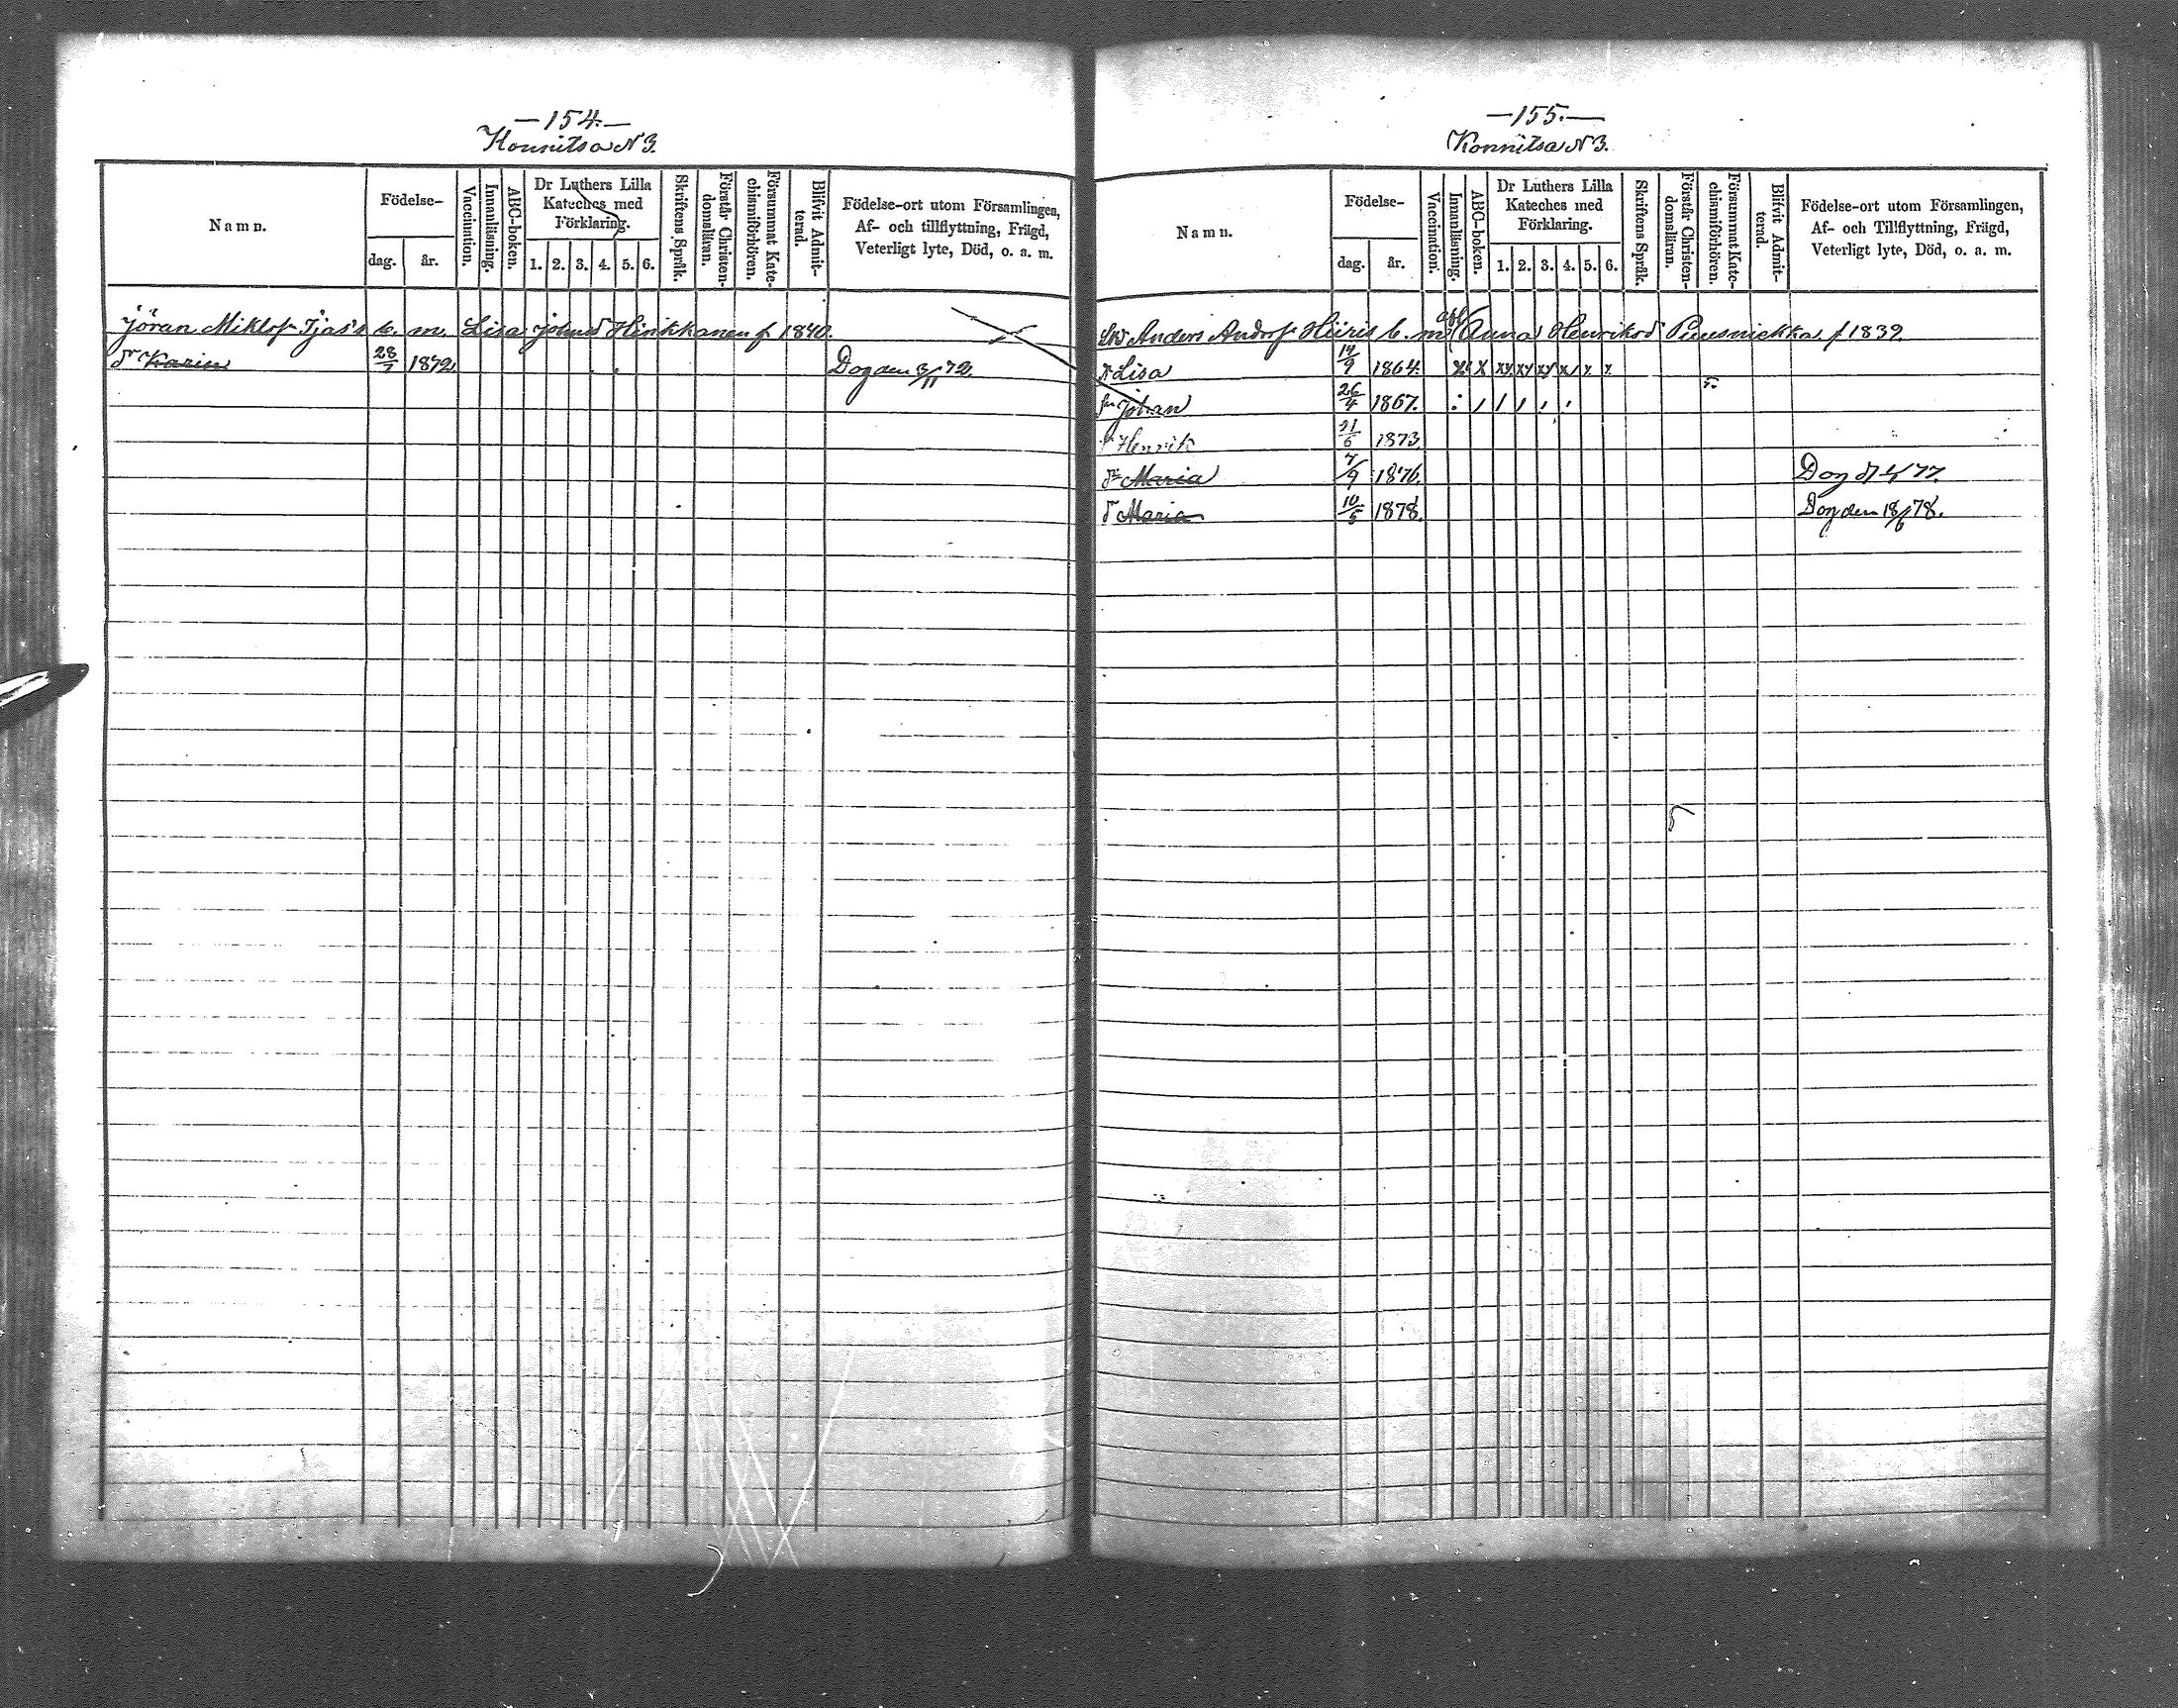 —154.—
Konnitsa N 3.
Namn.
Födelse-
dag.
år.
Vaccination.
Innanläsning.
ABC-boken.
Dr Luthers Lilla
Kateches med
Förklaring.
1. 2. 3. 4. 5. 6.
Skriftens Språk.
Förstår Christen-
domsläran.
Försummat Kate-
chismiförhören.
Blifvit Admit-
terad.
Födelse-ort utom Församlingen,
Af- och tillflyttning, Frägd,
Veterligt lyte, Död, o. a. m.
Jöran Miklsf Tjas's b. m. Lisa Johnsd Hinkkanen f. 1840.
dr Karin 28/7 1872. Dog den 3/11 72.
—155.—
Konnitsa N 3.
Namn.
Födelse-
dag.
år.
Vaccination.
Innanläsning.
ABC-boken.
Dr Luthers Lilla
Kateches med
Förklaring.
1. 2. 3. 4. 5. 6.
Skriftens Språk.
Förstår Christen-
domsläran.
Försummat Kate-
chismiförhören.
Blifvit Admit-
terad.
Födelse-ort utom Församlingen,
Af- och Tillflyttning, Frägd,
Veterligt lyte, Död, o. a. m.
Anders Andsf Hiiris b. m. Anna Henriksd f. 1839.
dr Lisa 1864. x x xx xx xy x x x
sn Johan 26/4 1867.
sn Henrik 21/6 1873
dr Maria 7/9 1876. Dog d 77.
dr Maria 10/5 1878. Dog den 18/6 78.